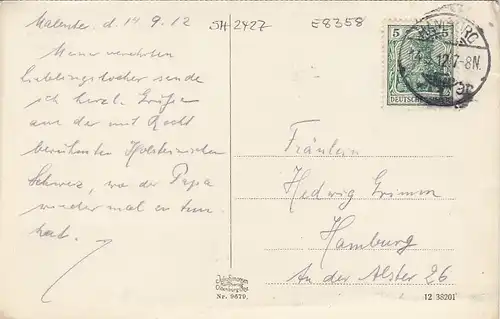 Malente, d. 14.9.12
SH 2427
E8358
Meiner verehrten
Lieblingstochter sende
ich herzl. Grüße
aus der mit Recht
berühmten Holsteinischen
Schweiz, wo der Papa
wieder mal zu tun
hat.
5 5
DEUTSCHES REICH
12.7-8N.
Fräulein
Hedwig Grimm
Hamburg
An der Alster 26
Nr. 9679.
12 38201